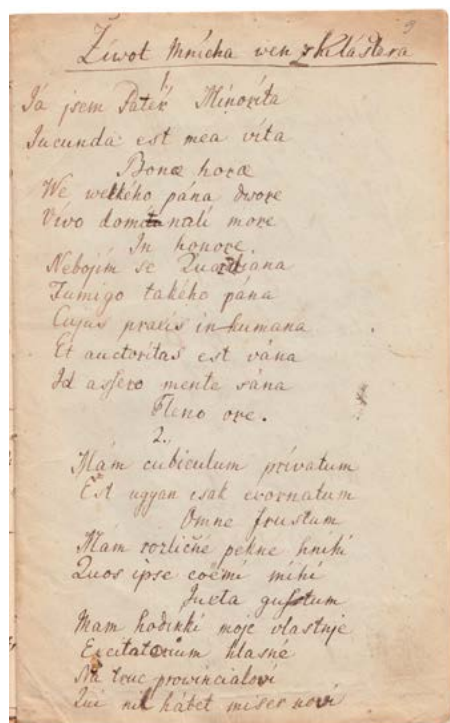 9
Život Mnícha wen z Kláštera
1.
Já jsem Páter Minorita
Jucunda est mea vita
Bonæ horæ
We welkého pána dwore
Vívo domínalí more
In honore.
Nebojím se Quardiana
Fumigo takého pána
Cujus praxis in humana
Et auctoritas est vána
Id assero mente sána
Pleno ore.
2.
Mám cubiculum privatum
Est ugyan csak exornatum
Omne frustum
Mám rozličné pekne knihi
Quos ipse coëmi mihi
Juxta gustum
Mam hodinki moje vlastnje
Excitatorium hlasné
Na truc provinciáloví
Qui nil hábet miser noví